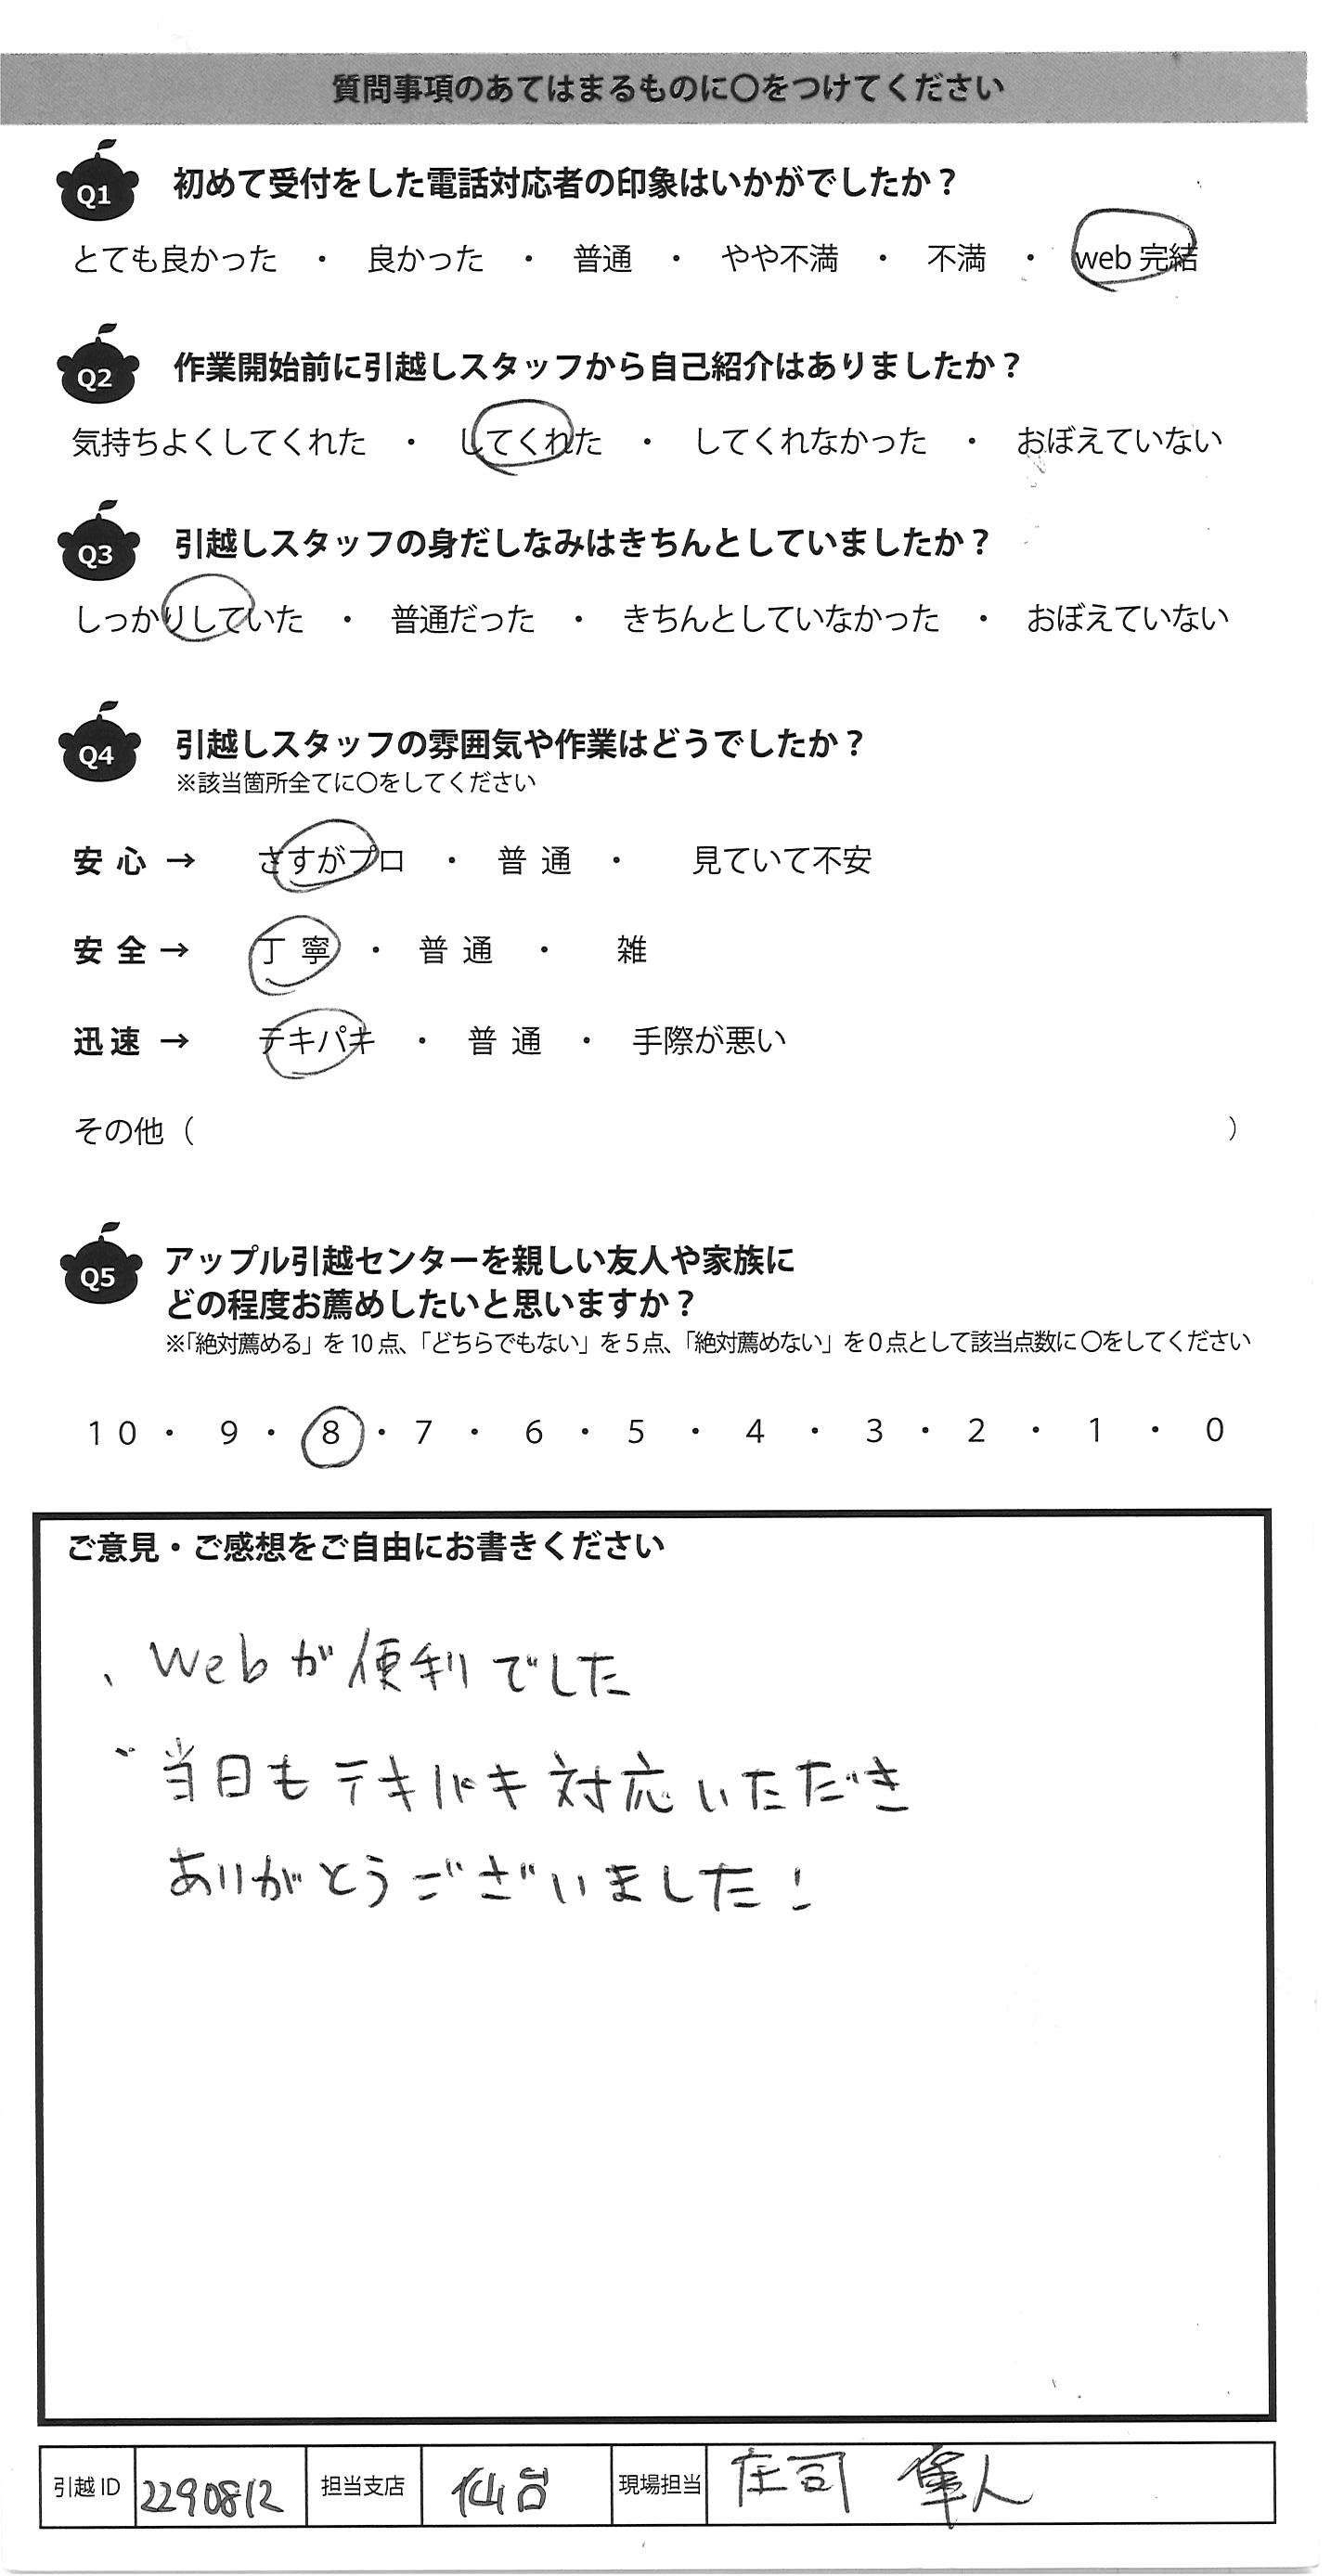 質問事項のあてはまるものに〇をつけてください
Q1 初めて受付をした電話対応者の印象はいかがでしたか？
とても良かった ・ 良かった ・ 普通 ・ やや不満 ・ 不満 ・ web完結
Q2 作業開始前に引越しスタッフから自己紹介はありましたか？
気持ちよくしてくれた ・ してくれた ・ してくれなかった ・ おぼえていない
Q3 引越しスタッフの身だしなみはきちんとしていましたか？
しっかりしていた ・ 普通だった ・ きちんとしていなかった ・ おぼえていない
Q4 引越しスタッフの雰囲気や作業はどうでしたか？
※該当箇所全てに〇をしてください
安心 → さすがプロ ・ 普通 ・ 見ていて不安
安全 → 丁寧 ・ 普通 ・ 雑
迅速 → テキパキ ・ 普通 ・ 手際が悪い
その他（ ）
Q5 アップル引越センターを親しい友人や家族に
どの程度お薦めしたいと思いますか？
※「絶対薦める」を10点、「どちらでもない」を5点、「絶対薦めない」を0点として該当点数に〇をしてください
10 ・ 9 ・ 8 ・ 7 ・ 6 ・ 5 ・ 4 ・ 3 ・ 2 ・ 1 ・ 0
ご意見・ご感想をご自由にお書きください
、Webが便利でした
当日もテキパキ対応いただき
ありがとうございました！
引越ID 2290812 担当支店 仙台 現場担当 庄司 隼人